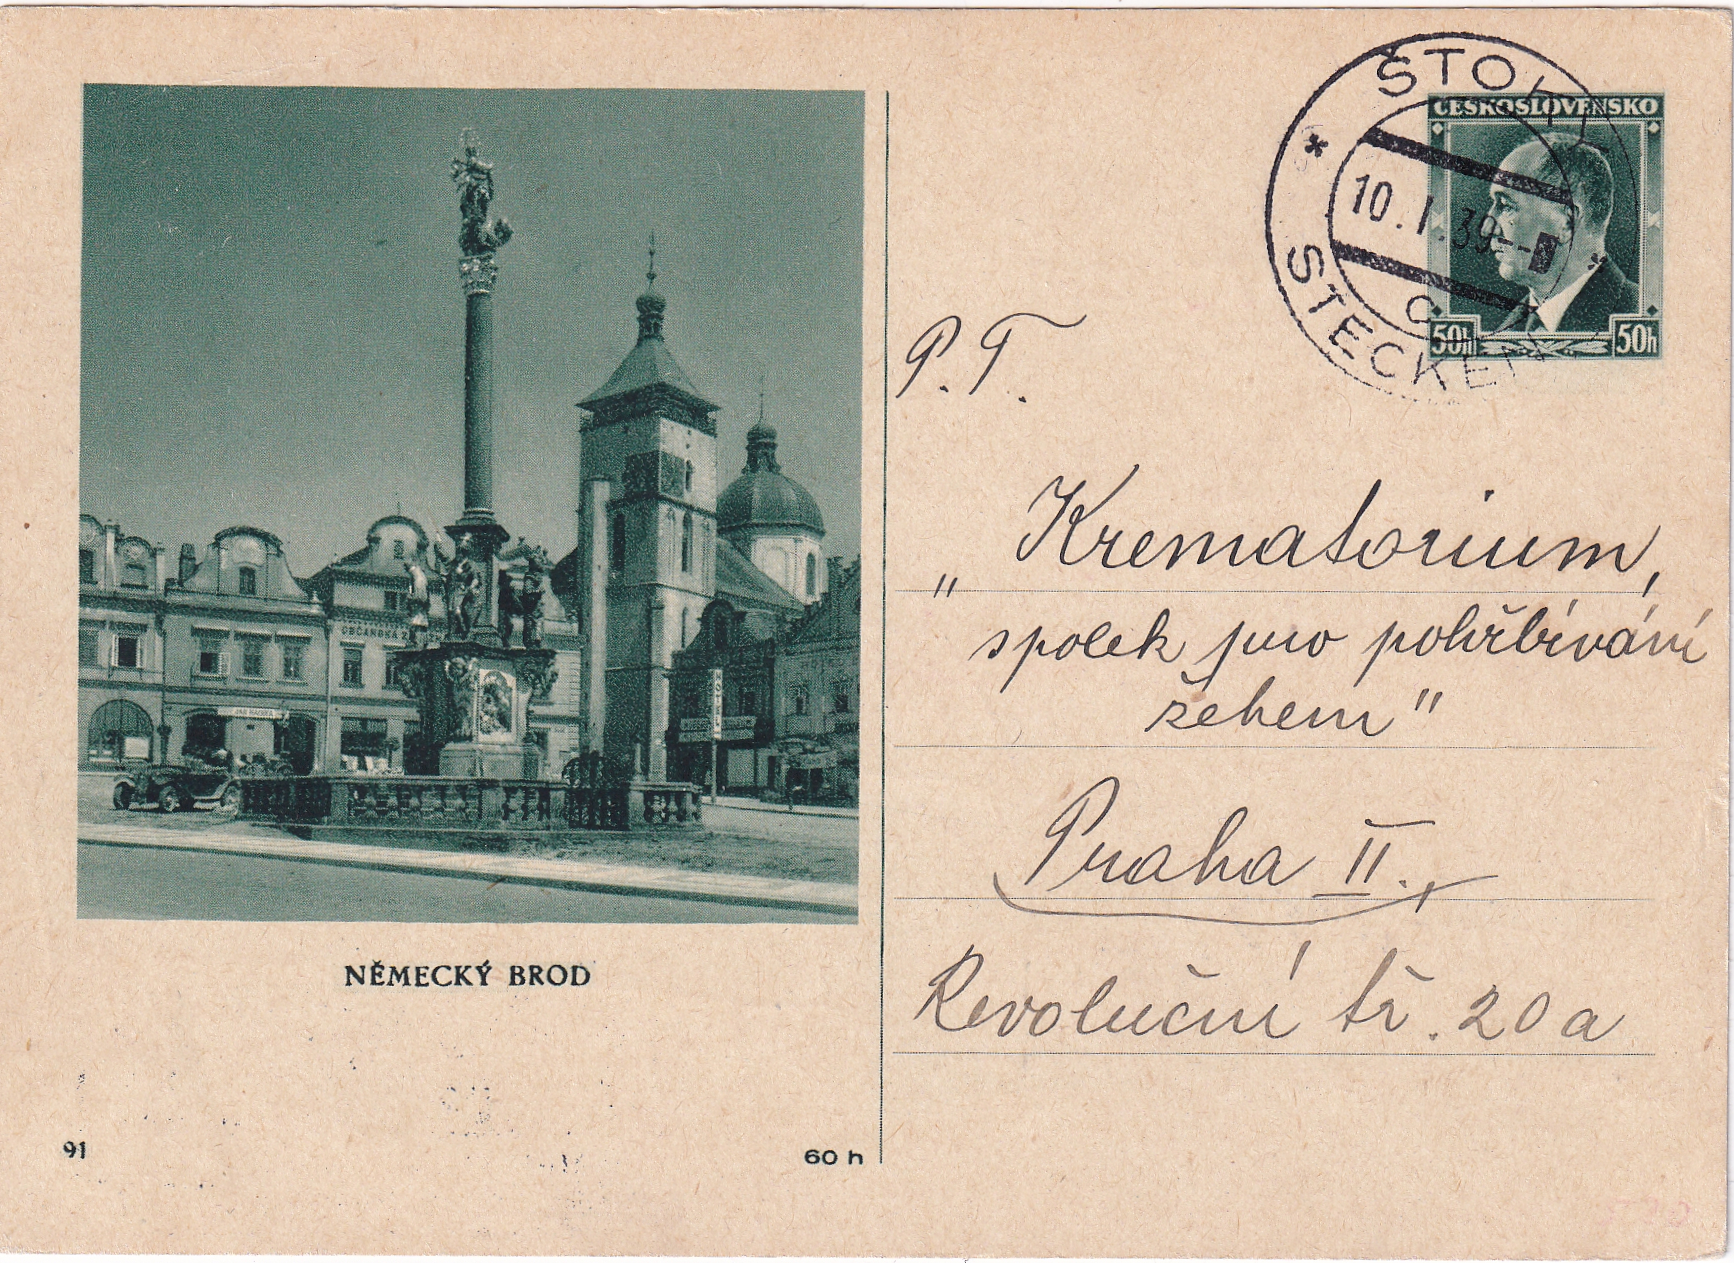 OBČANSKÁ Z
HOTEL
NĚMECKÝ BROD
91
60 h
ŠTOKY
ČESKOSLOVENSKO
10.I.39
STECKEN
50h 50h
P. T.
„Krematorium,
spolek pro pohřbívání
žehem"
Praha II.
Revoluční tř. 20a